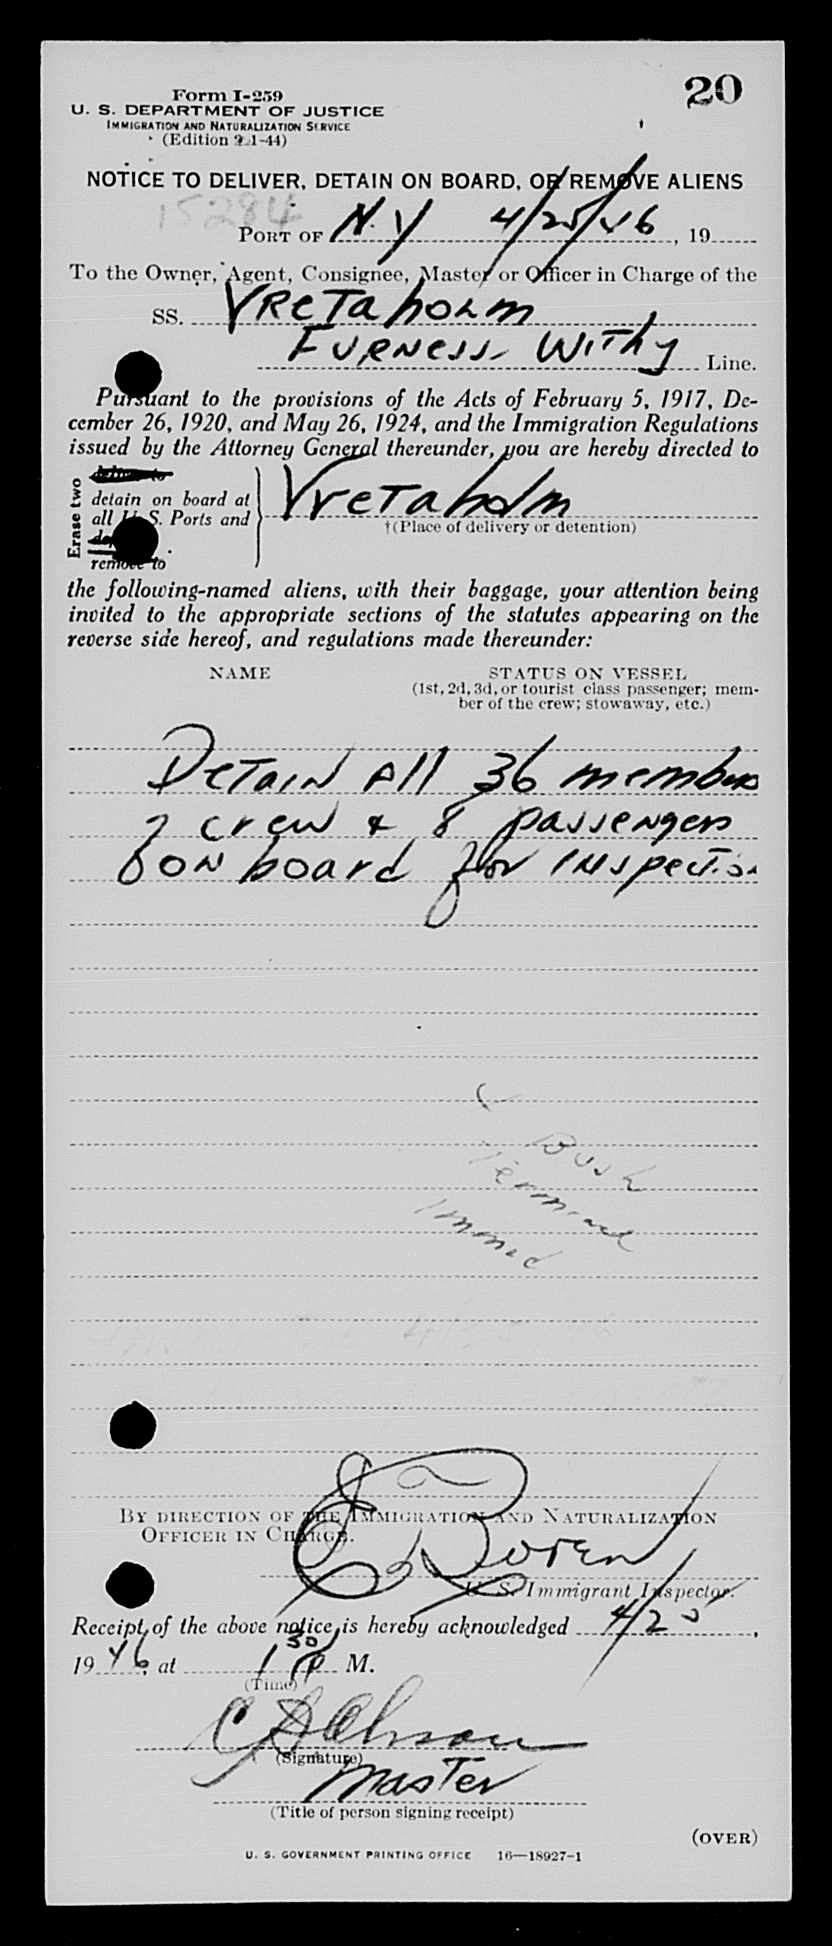 20
Form I-259
U. S. DEPARTMENT OF JUSTICE
IMMIGRATION AND NATURALIZATION SERVICE
(Edition 2-1-44)
NOTICE TO DELIVER, DETAIN ON BOARD, OR REMOVE ALIENS
15284
PORT OF N.Y 4/25/46, 19
To the Owner, Agent, Consignee, Master or Officer in Charge of the
SS. VReTaholm
FURNess- WiThy Line.
Pursuant to the provisions of the Acts of February 5, 1917, De-
cember 26, 1920, and May 26, 1924, and the Immigration Regulations
issued by the Attorney General thereunder, you are hereby directed to
Erase two
deliver to
detain on board at
all U. S. Ports and
remove to
VreTaholm
†(Place of delivery or detention)
the following-named aliens, with their baggage, your attention being
invited to the appropriate sections of the statutes appearing on the
reverse side hereof, and regulations made thereunder:
NAME STATUS ON VESSEL
(1st, 2d, 3d, or tourist class passenger; mem-
ber of the crew; stowaway, etc.)
DeTain All 36 members
of crew & 8 passengers
on board for inspection
Bush
Terminal
Immed
BY DIRECTION OF THE IMMIGRATION AND NATURALIZATION
OFFICER IN CHARGE.
Boren
U. S. Immigrant Inspector.
Receipt of the above notice is hereby acknowledged 4/25,
1946, at 1 30 P M.
(Time)
(Signature)
MasTer
(Title of person signing receipt)
(OVER)
U. S. GOVERNMENT PRINTING OFFICE 16—18927-1